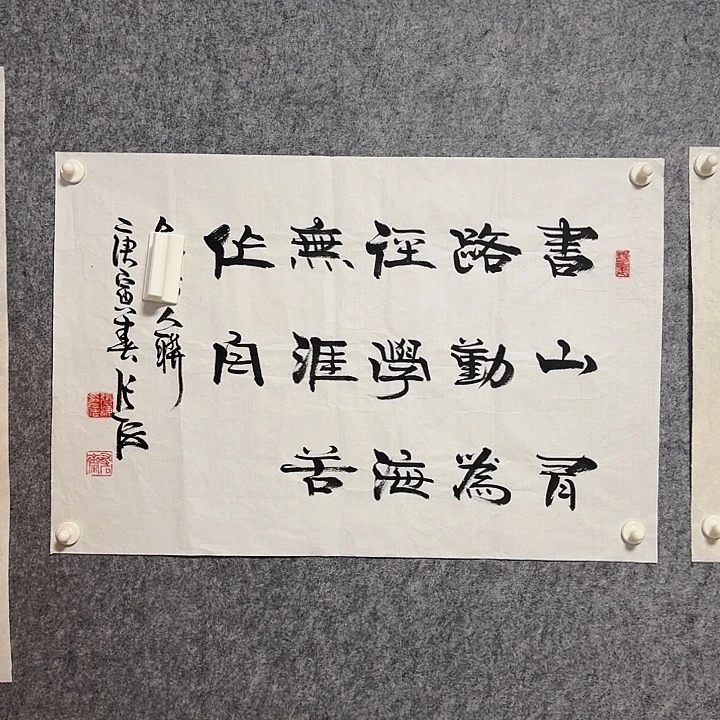 書山有
路勤為
徑學海
無涯苦
作舟
人聯
庚寅春